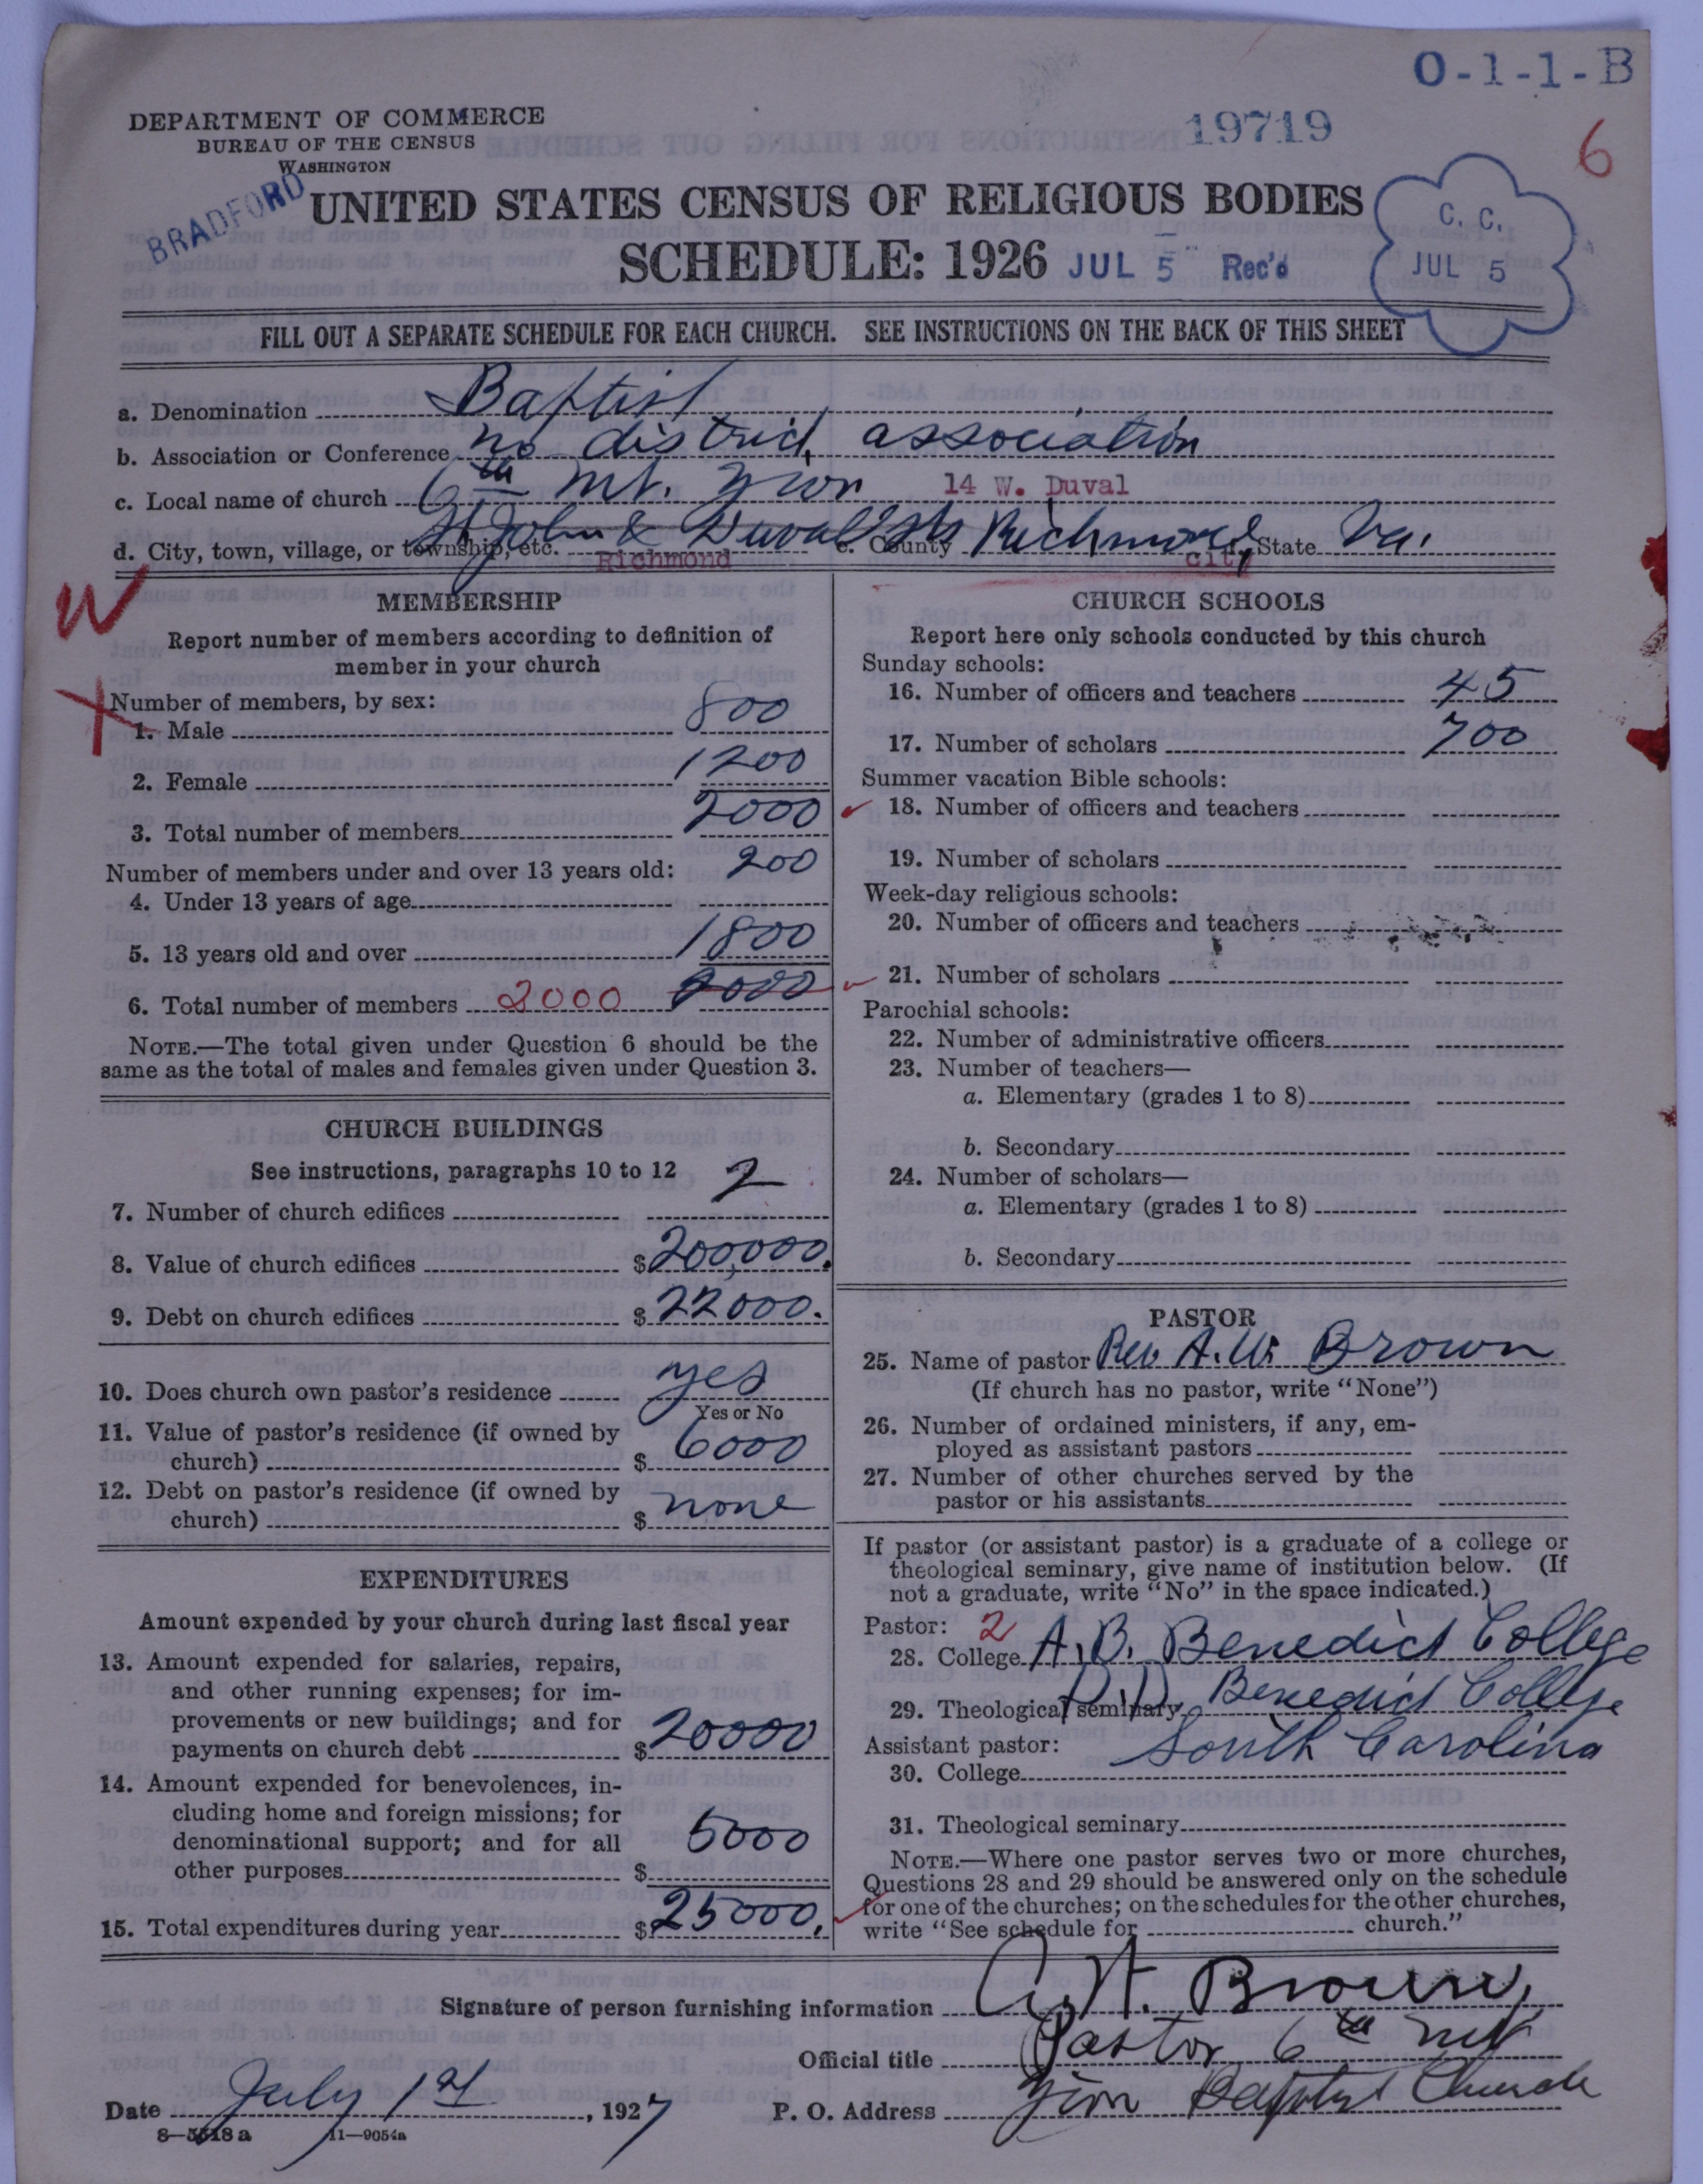 O-1-1-B
DEPARTMENT OF COMMERCE
BUREAU OF THE CENSUS
WASHINGTON
19719
6
BRADFORD
UNITED STATES CENSUS OF RELIGIOUS BODIES
SCHEDULE: 1926 JUL 5 Rec'd
C. C.
JUL 5
FILL OUT A SEPARATE SCHEDULE FOR EACH CHURCH. SEE INSTRUCTIONS ON THE BACK OF THIS SHEET
a. Denomination Baptist
b. Association or Conference no district association
c. Local name of church 6th Mt. Zion 14 W. Duval
d. City, town, village, or township, etc. St John & Duval Sts Richmond e. County Richmond City f. State Va.
W
X
MEMBERSHIP
Report number of members according to definition of
member in your church
Number of members, by sex:
1. Male 800
2. Female 1200
3. Total number of members 2000
Number of members under and over 13 years old:
4. Under 13 years of age 200
5. 13 years old and over 1800
6. Total number of members 2000 2000
NOTE.—The total given under Question 6 should be the
same as the total of males and females given under Question 3.
CHURCH BUILDINGS
See instructions, paragraphs 10 to 12
7. Number of church edifices 2
8. Value of church edifices $200,000.
9. Debt on church edifices $22000.
10. Does church own pastor's residence yes
Yes or No
11. Value of pastor's residence (if owned by
church) $ 6000
12. Debt on pastor's residence (if owned by
church) $ none
EXPENDITURES
Amount expended by your church during last fiscal year
13. Amount expended for salaries, repairs,
and other running expenses; for im-
provements or new buildings; and for
payments on church debt $20000
14. Amount expended for benevolences, in-
cluding home and foreign missions; for
denominational support; and for all
other purposes $ 5000
15. Total expenditures during year $25000.
CHURCH SCHOOLS
Report here only schools conducted by this church
Sunday schools:
16. Number of officers and teachers 45
17. Number of scholars 700
Summer vacation Bible schools:
18. Number of officers and teachers
19. Number of scholars
Week-day religious schools:
20. Number of officers and teachers
21. Number of scholars
Parochial schools:
22. Number of administrative officers
23. Number of teachers—
a. Elementary (grades 1 to 8)
b. Secondary
24. Number of scholars—
a. Elementary (grades 1 to 8)
b. Secondary
PASTOR
25. Name of pastor Rev. A. W. Brown
(If church has no pastor, write "None")
26. Number of ordained ministers, if any, em-
ployed as assistant pastors
27. Number of other churches served by the
pastor or his assistants
If pastor (or assistant pastor) is a graduate of a college or
theological seminary, give name of institution below. (If
not a graduate, write "No" in the space indicated.)
Pastor: 2
28. College A. B. Benedict College
29. Theological seminary D. D. Benedict College
Assistant pastor: South Carolina
30. College
31. Theological seminary
NOTE.—Where one pastor serves two or more churches,
Questions 28 and 29 should be answered only on the schedule
for one of the churches; on the schedules for the other churches,
write "See schedule for church."
Signature of person furnishing information A. W. Brown,
Official title Pastor 6th Mt
Date July 1st, 1927 P. O. Address Zion Baptist Church
8—5518a 11—9054a